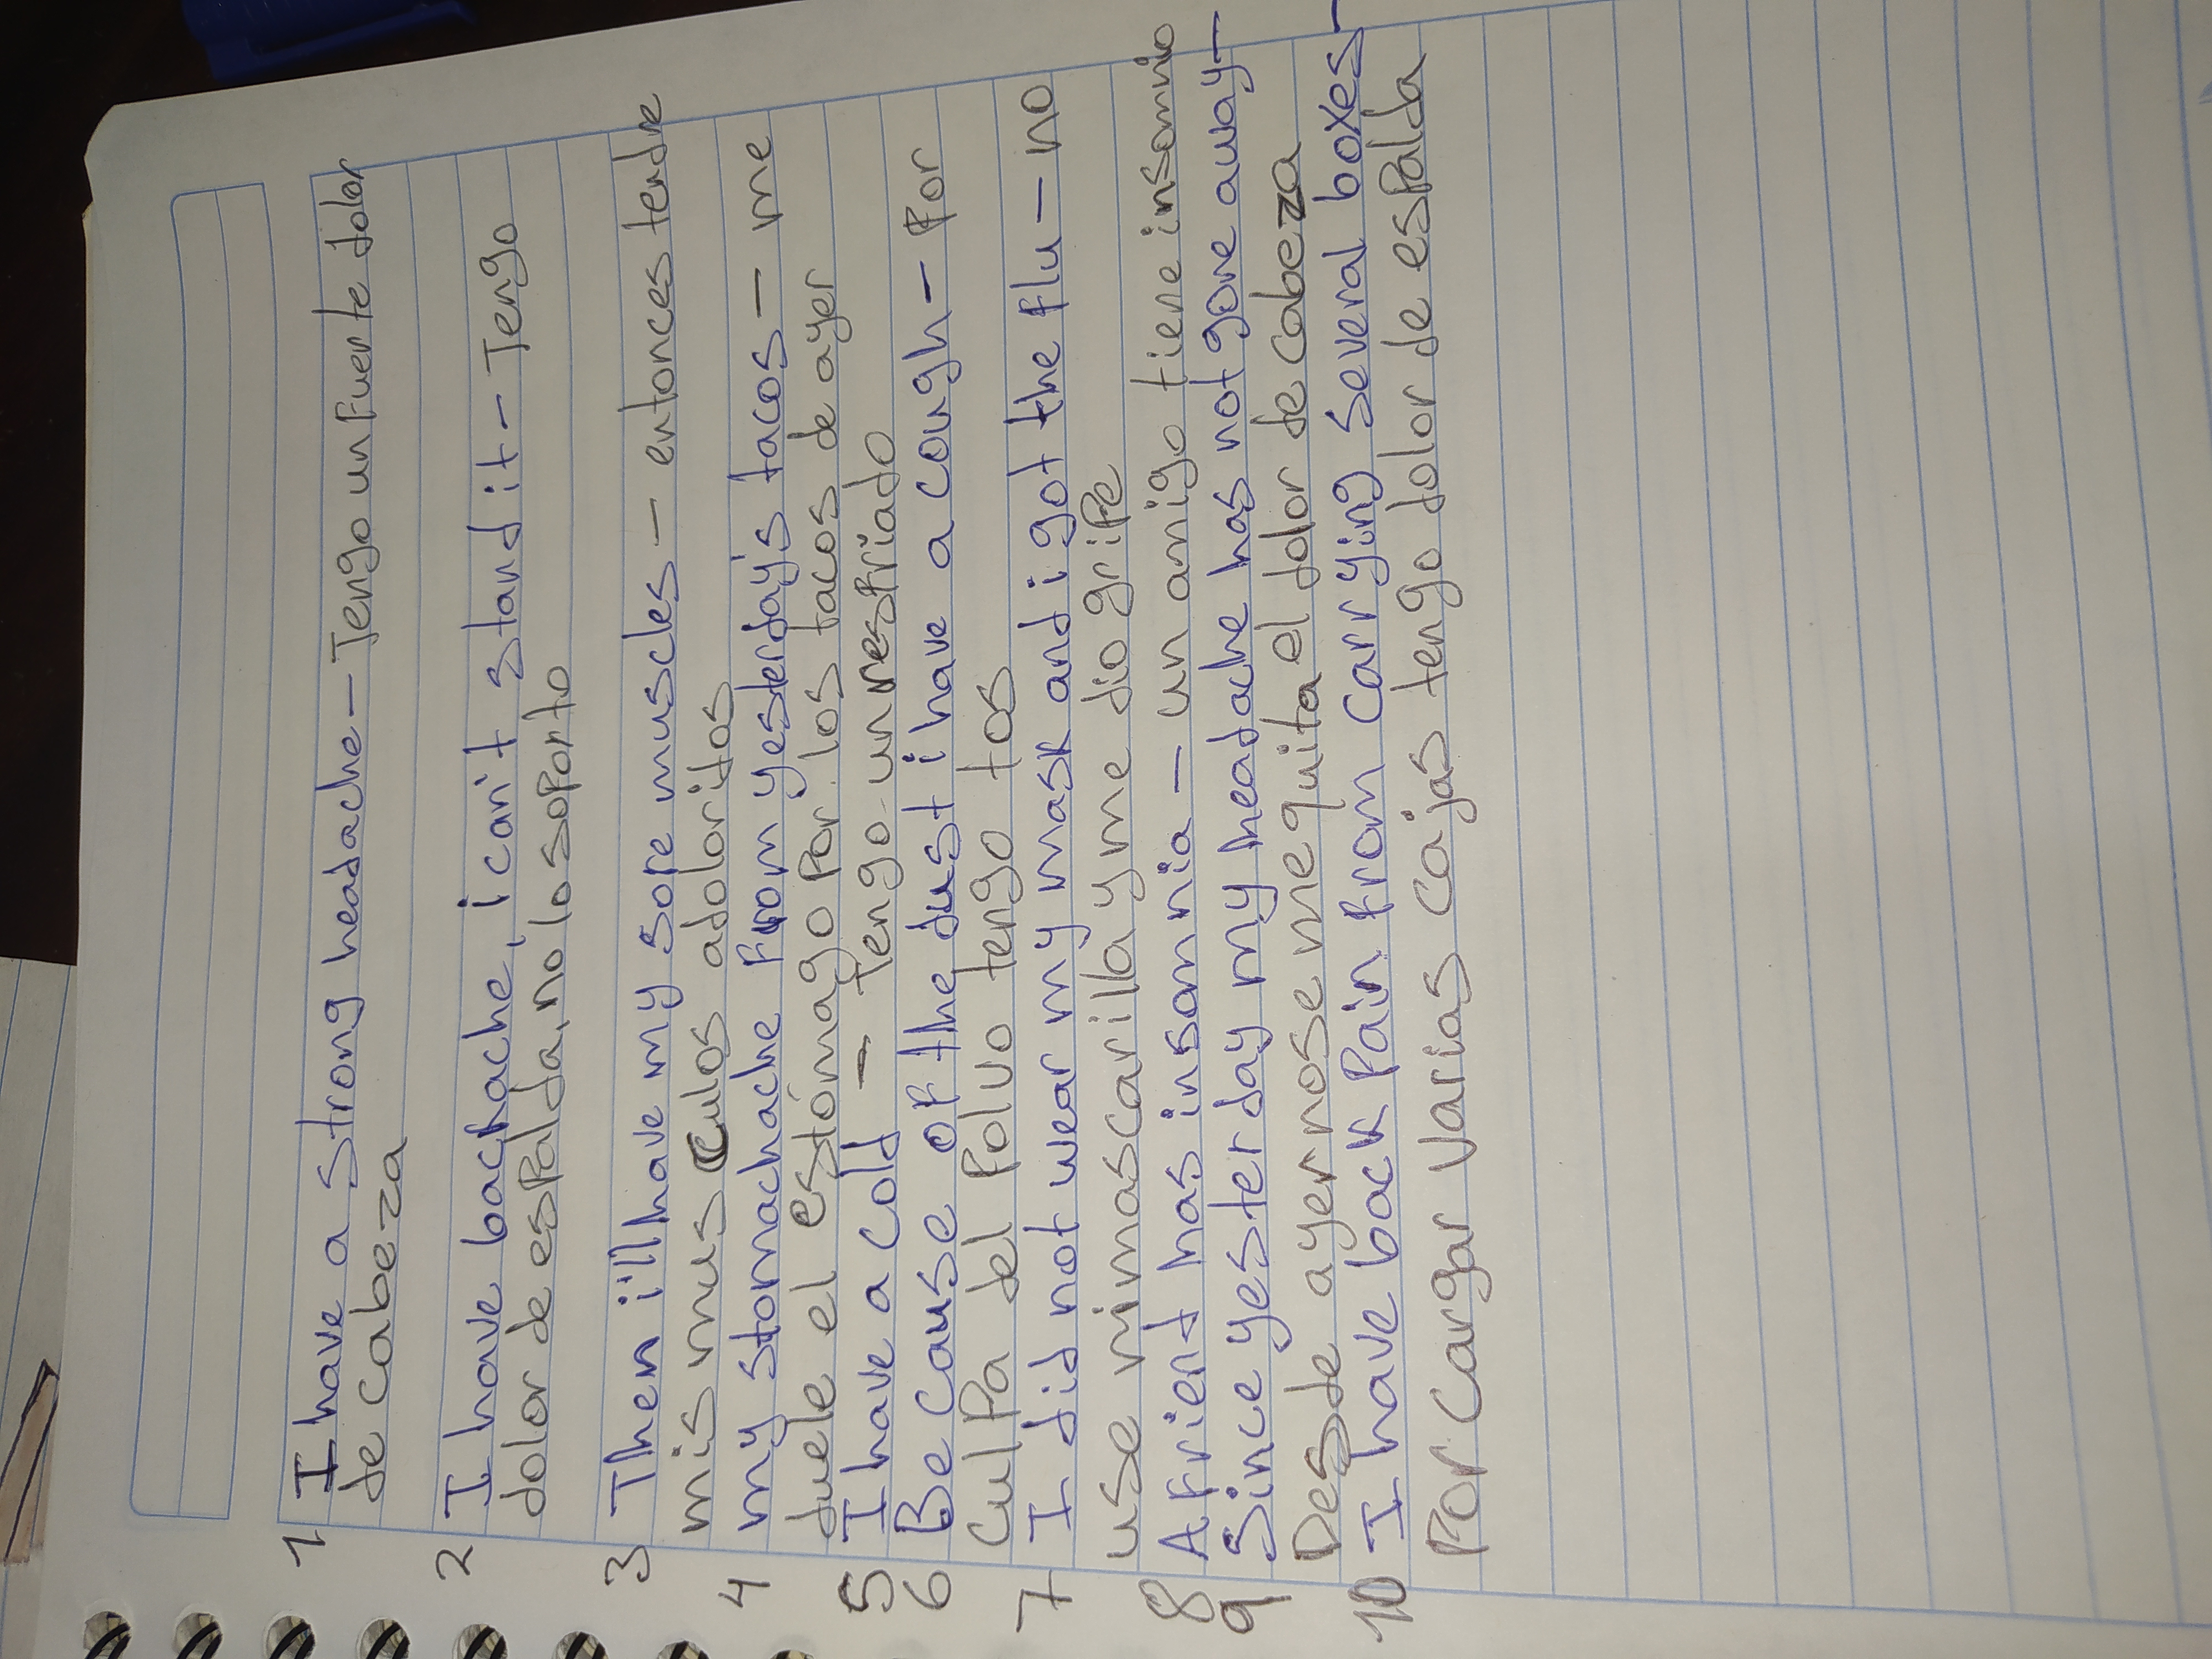 1 I have a strong headache - Tengo un fuerte dolor
de cabeza
2 I have bachache, i can't stand it - Tengo
dolor de espalda, no lo soporto
3 Then i'll have my sore muscles - entonces tendre
mis musculos adoloridos
4 my stomachache From yesterday's tacos - me
duele el estómago por los tacos de ayer
5 I have a cold - Tengo un resfriado
6 Be cause of the dust i have a cough - Por
Culpa del Polvo tengo tos
7 I did not wear my mask and i got the flu - no
use mi mascarilla y me dio gripe
8 A friend has insomnia - un amigo tiene insomnio
9 Since yesterday my headache has not gone away -
Desde ayer no se me quita el dolor de cabeza
10 I have back Pain from carrying several boxes -
Por Cargar Varias cajas tengo dolor de espalda